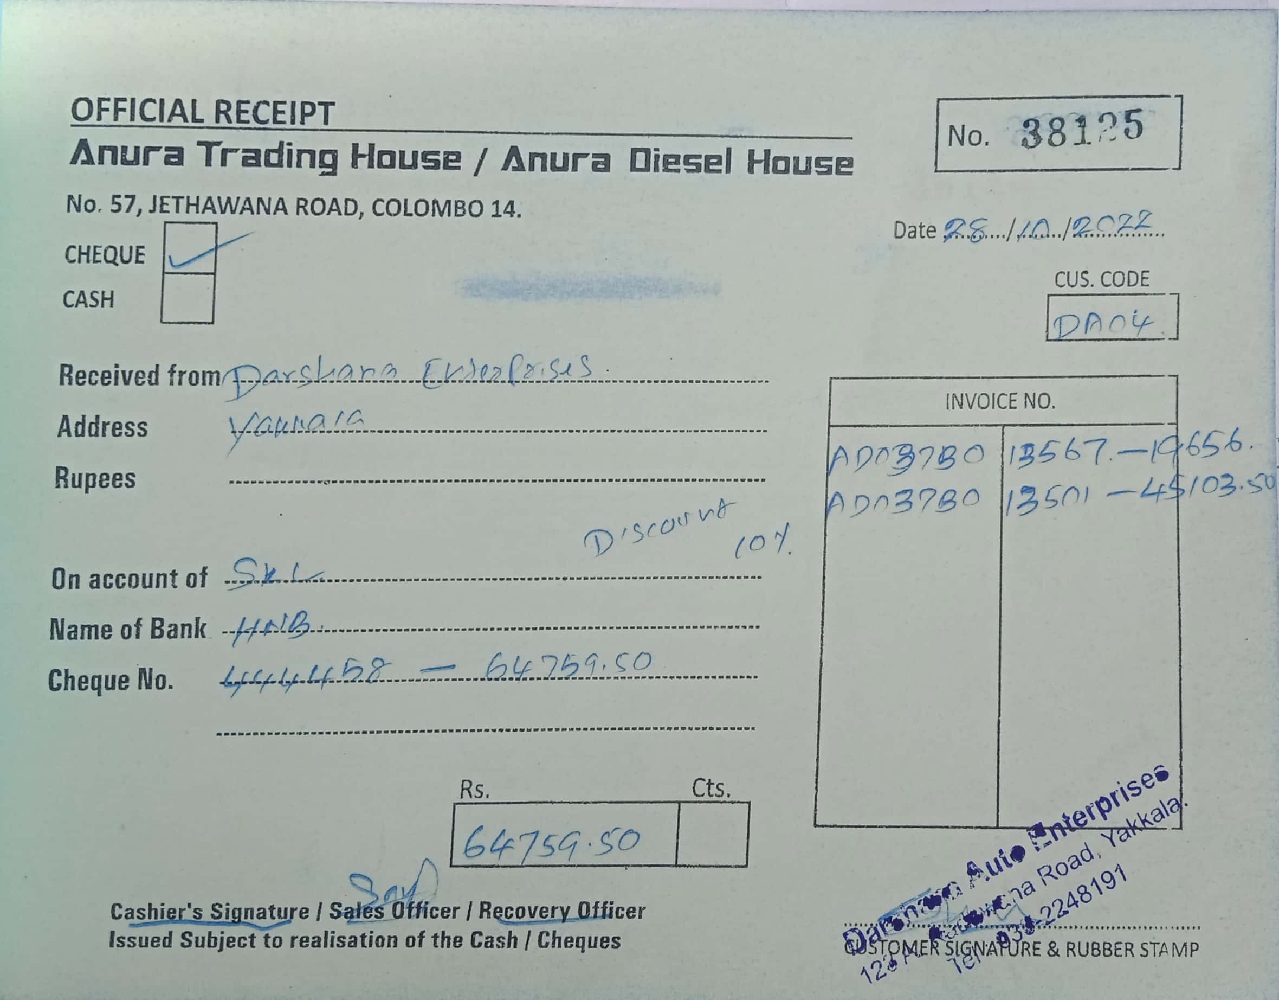 OFFICIAL RECEIPT
Anura Trading House / Anura Diesel House
No. 57, JETHAWANA ROAD, COLOMBO 14.
No. 38125
Date 28/10/2022
CHEQUE
CASH
CUS. CODE
DA04
Received from Darshana Enterprises.
Address Yakkala
Rupees
INVOICE NO.
AD037B0 13567.-19656.
AD037B0 13501 -45103.50
Discount
10%.
On account of
Name of Bank HNB.
Cheque No. 444458 - 64759.50
Rs. Cts.
64759.50
Cashier's Signature / Sales Officer / Recovery Officer
Issued Subject to realisation of the Cash / Cheques
Darshana Auto Enterprises
Road, Yakkala.
Tel: 033-2248191
CUSTOMER SIGNATURE & RUBBER STAMP